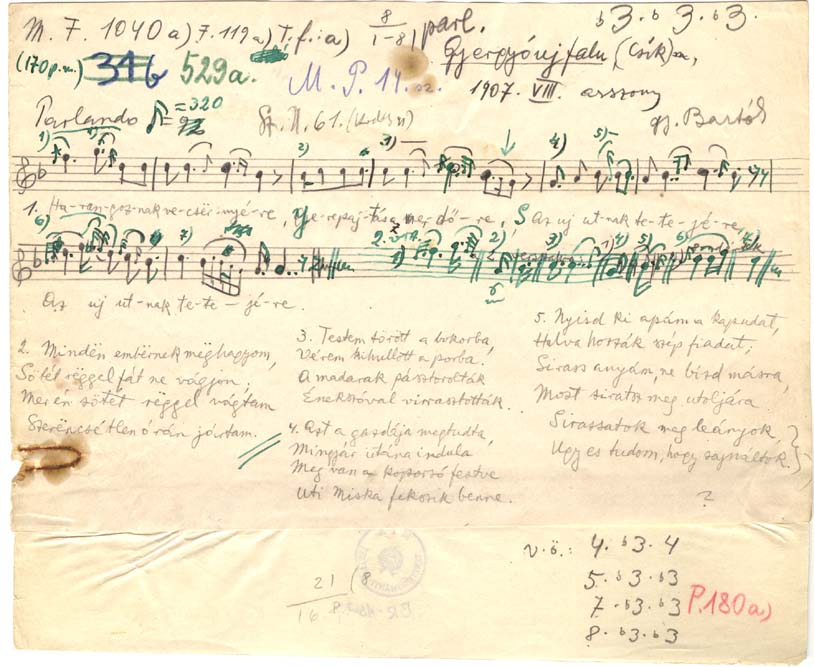 M. F. 1040 a) F. 119 a) T. f. : a) 8/1-8 parl. b3. b3. b3.
(170 p.m.) 34b 529a. M. P. 14 sz. Gyergyóújfalu (Csík) m,
1907. VIII. asszony
Parlando =320 Sz. N. 61. gy. Bartók
1) 2) 3) 4) 5)
1. Harangoznak vecsérnyére, Gyere pajtás erdőre, Az uj utnak tetejére,
Az uj utnak tetejére.
2. Mindén embérnek méghagyom,
Sötét réggel fát ne vágjon;
Mer én sötét réggel vágtam
Szeréncsétlen órán jártam.
3. Testem törött a bokorba,
Vérem kihullott a porba.
A madarak pásztorolták
Énekszóval virrasztották.
4. Azt a gazdája megtudta,
Mingyár utána indula
Meg van a koporsó festve
Uti Miska fekszik benne.
5. Nyisd ki apám a kapudat,
Halva hozzák szép fiadat;
Sirass anyám, ne bízd másra,
Most siratsz meg utoljára
Sirassatok meg leányok,
Ugy es tudom, hogy sajnáltok.
?
v.ö.: 4. b3. 4
5. b3. b3
7. b3. b3
8. b3. b3
P. 180 a)
21 (8
16